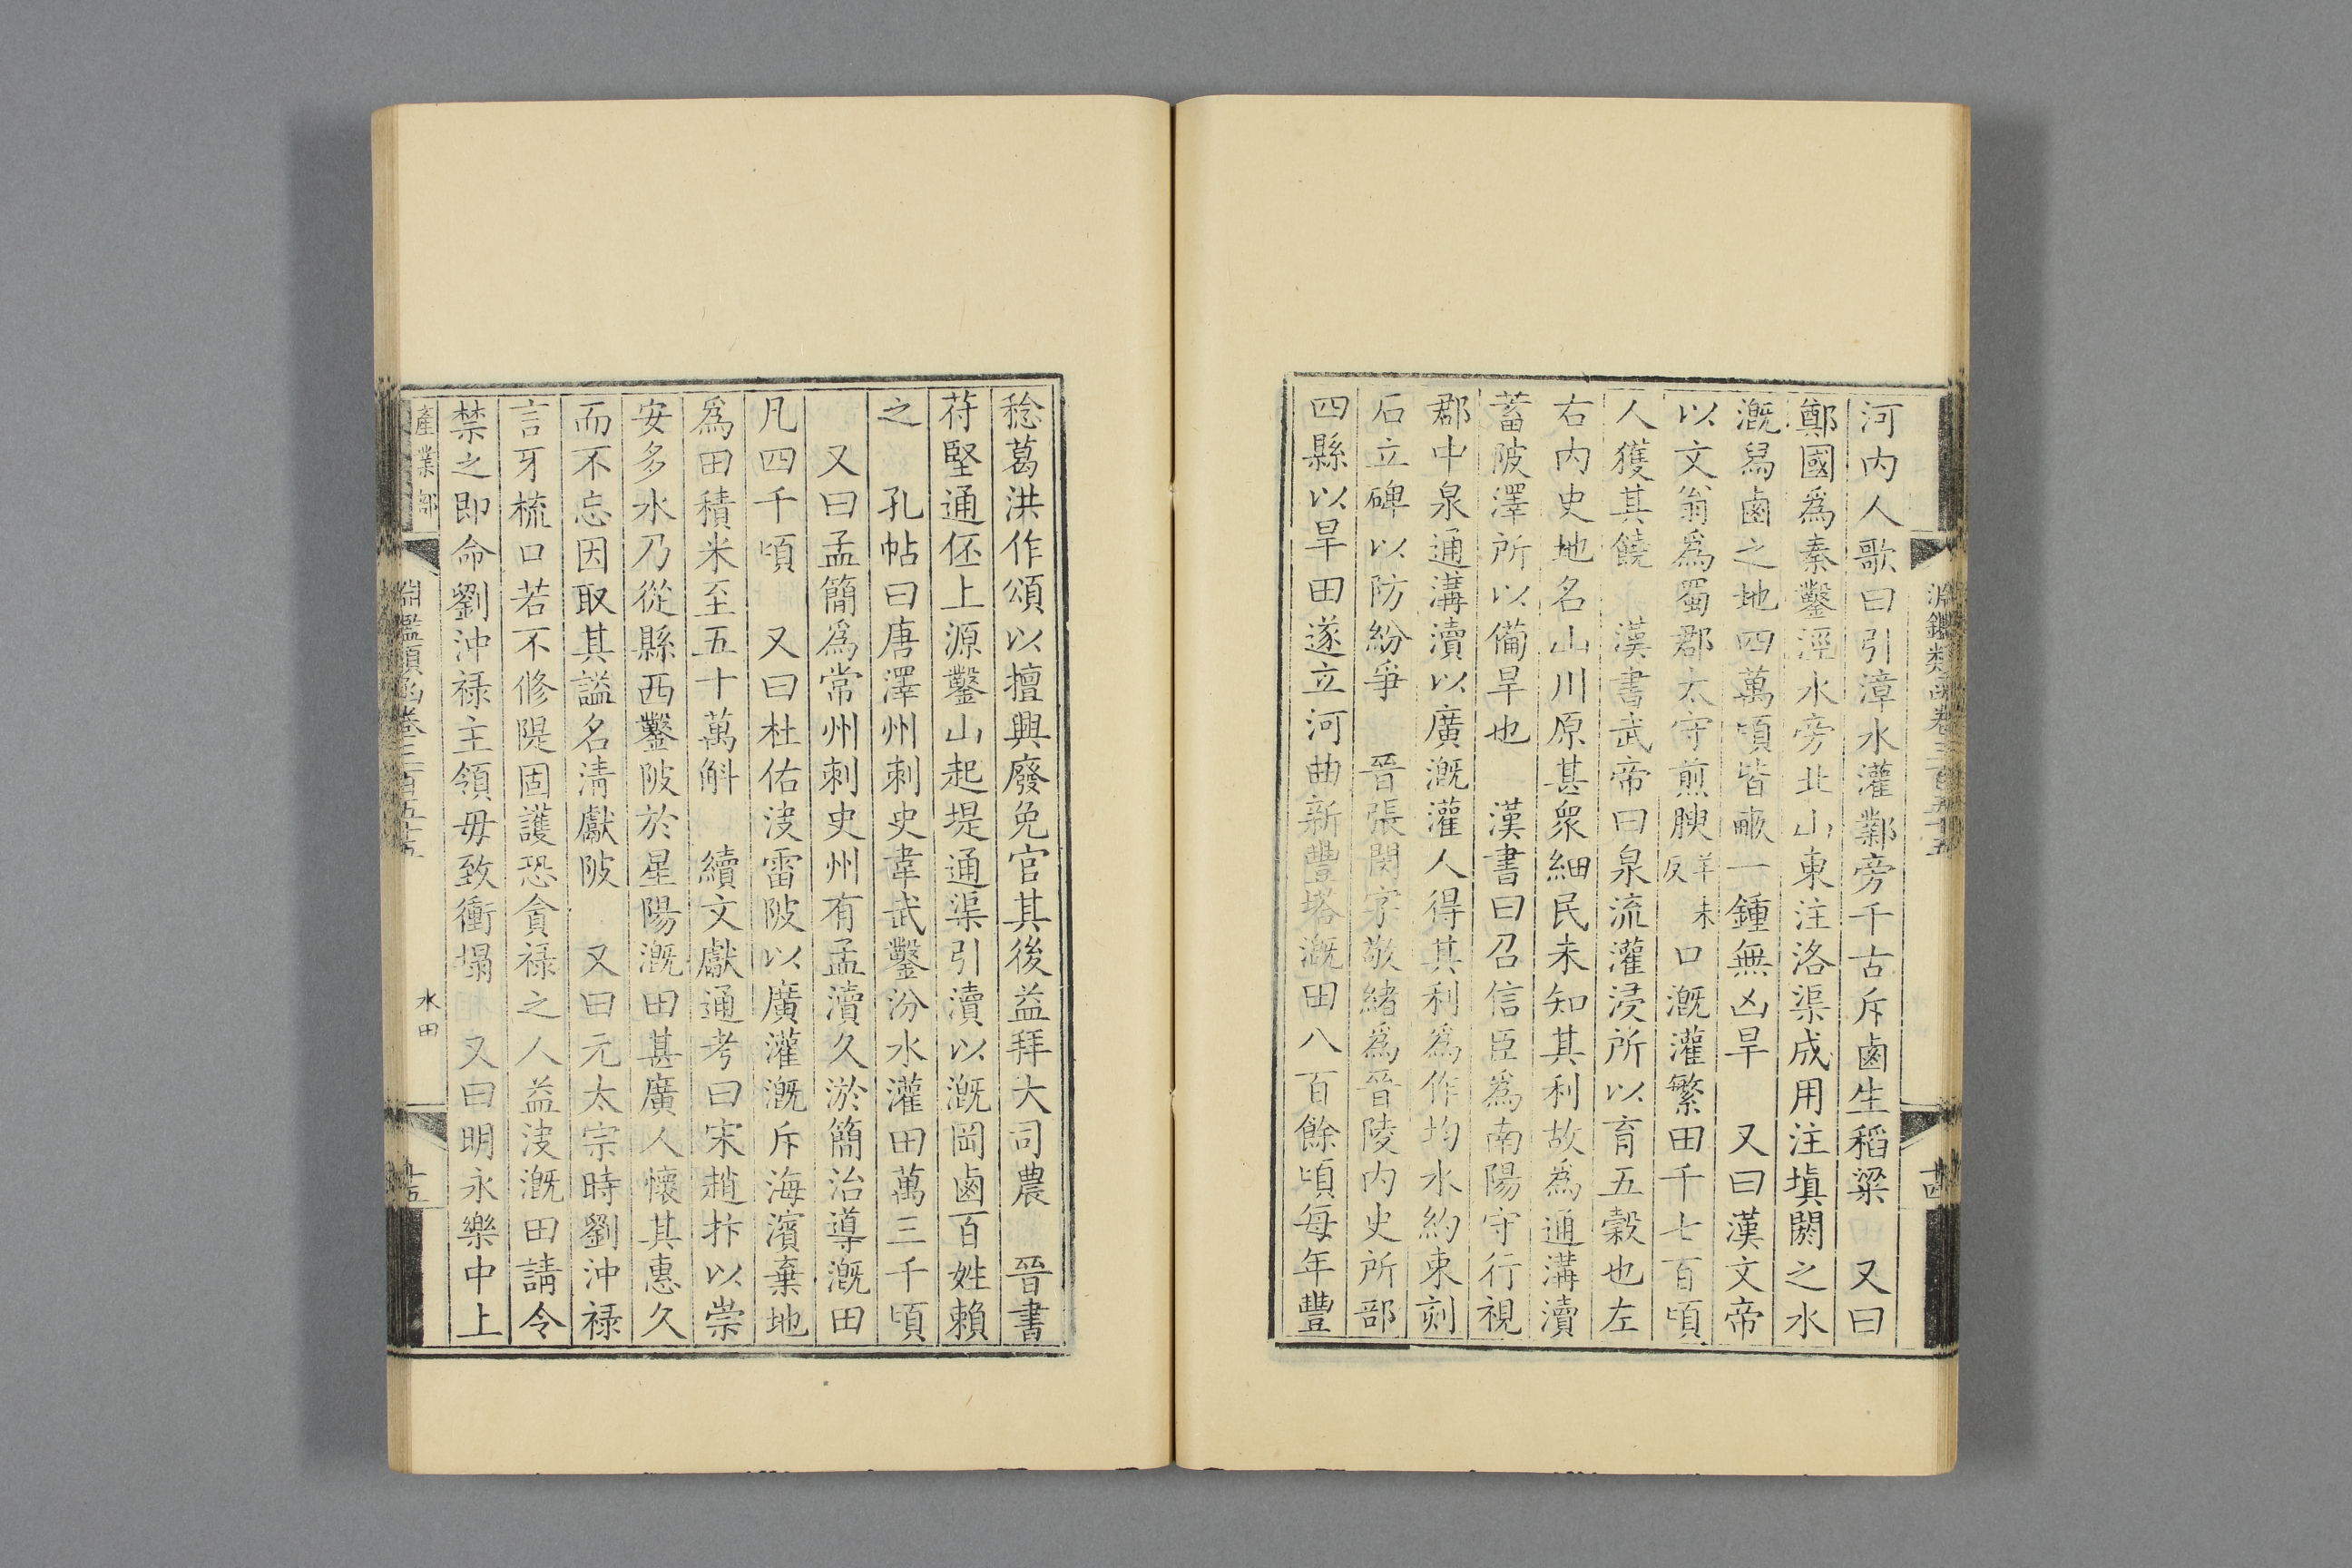 淵鑑類函卷三百五十五
十四
河内人歌曰引漳水灌鄴旁千古斥鹵生稻粱　又曰
鄭國爲秦鑿涇水旁北山東注洛渠成用注填閼之水
溉舄鹵之地四萬頃皆畝一鍾無凶旱　又曰漢文帝
以文翁爲蜀郡太守煎腴羊朱反口溉灌繁田千七百頃
人獲其饒　漢書武帝曰泉流灌浸所以育五穀也左
右内史地名山川原甚衆細民未知其利故爲通溝瀆
蓄陂澤所以備旱也　漢書曰召信臣爲南陽守行視
郡中泉通溝瀆以廣溉灌人得其利爲作均水約束刻
石立碑以防紛爭　晉張闓字敬緒爲晉陵内史所部
四縣以旱田遂立河曲新豐塔溉田八百餘頃每年豐
稔葛洪作頌以擅興廢免官其後益拜大司農　晉書
苻堅通伾上源鑿山起堤通渠引瀆以溉岡鹵百姓賴
之　孔帖曰唐澤州刺史韋武鑿汾水灌田萬三千頃
又曰孟簡爲常州刺史州有孟瀆久淤簡治導溉田
凡四千頃　又曰杜佑決雷陂以廣灌溉斥海濱棄地
爲田積米至五十萬斛　續文獻通考曰宋趙抃以崇
安多水乃從縣西鑿陂於星陽溉田甚廣人懷其惠久
而不忘因取其謚名清獻陂　又曰元太宗時劉沖祿
言牙梳口若不修隄固護恐貪祿之人益決溉田請令
禁之即命劉沖祿主領毋致衝塌　又曰明永樂中上
產業部
淵鑑類函卷三百五十五
水田
十五